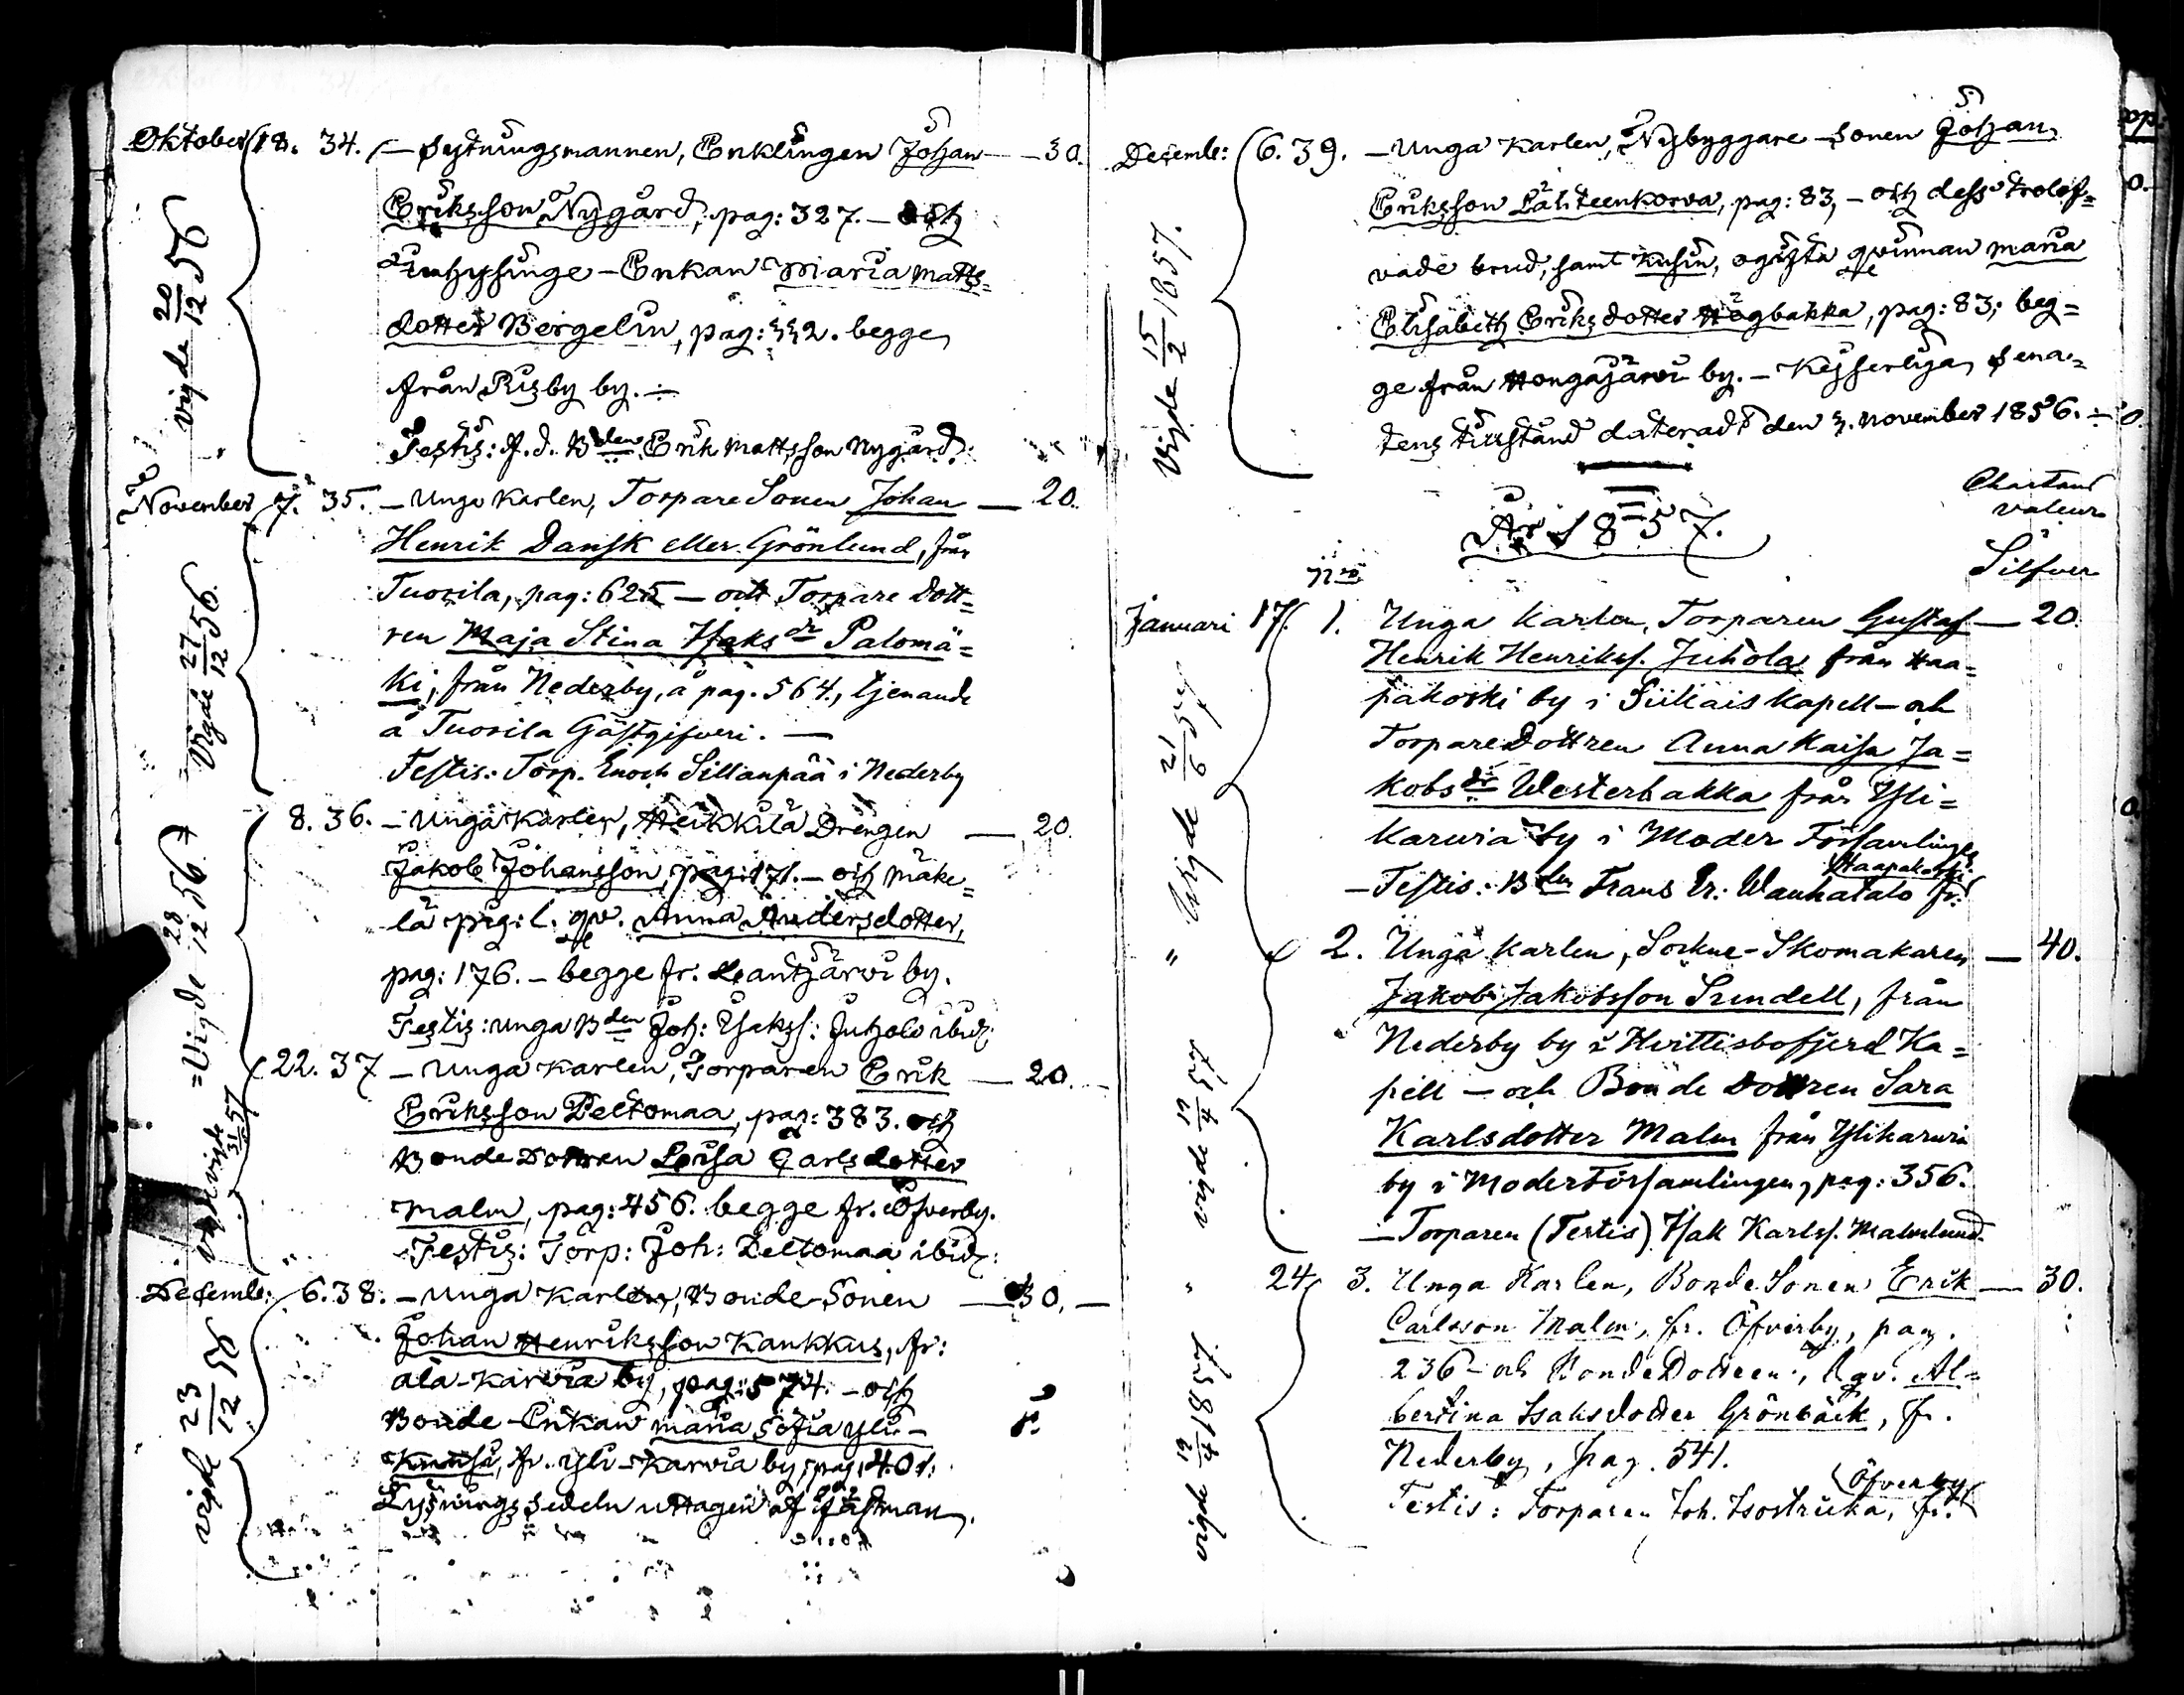 Oktober 18. 34. – Sytningsmannen, Enklingen Johan — 30.
Eriksson Nygård, pag: 327. – och
Inhysinge – Enkan Maria Matts=
dotter Bergelin, pag: 332. begge
från Risby by. –
Testis: f.d. Bden Erik Mattsson Nygård.
vigde 20/12 56
November 7. 35. – Unga Karlen, Torpare Sonen Johan — 20.
Henrik Dansk eller Grönlund, från
Tuorila, pag: 625 – och Torpare Dott=
ren Maja Stina Isaksdr Palomä=
ki, från Nederby, å pag. 564., tjenande
å Tuorila Gästgifveri. —
Testis: Torp. Enoch Sillanpää i Nederby
Vigde 27/12 56.
8. 36. – Unga Karlen, Heikkilä Drengen — 20.
Jakob Johansson, pag: 171. – och Mäke=
lä pig: l. qv. Anna Andersdotter,
pag: 176. – begge fr. Leantjärvi by.
Testis: unga Bden Joh: Isakss: Juhola ibid:
= Vigde 28/12 56
22. 37 – Unga Karlen, Torparen Erik — 20.
Eriksson Peltomaa, pag: 383. och
Bonde Dottren Lovisa Carlsdotter
Malm, pag: 456. begge fr. Öfverby.
Testis: Torp: Joh: Peltomaa ibid:
vigde 31/57
Decemb: 6. 38. – Unga Karlen, Bonde-Sonen — 30, —
Johan Henriksson Kankkus, fr:
ala-Karvia by, pag: 574. – och
Bonde-Enkan Maria Sofia Yli-
Knuusi, fr. Yli-Karvia by, pag: 401.
Lysningssedeln uttagen af Fästman.
vigde 23/12 56
Decemb: 6. 39. – Unga Karlen, Nybyggare-Sonen Johan
Eriksson Lähteenkorva, pag: 83, – och dess trolof=
vade brud, samt kusin, ogifta qvinnan Maria
Elisabeth Eriksdotter Högbakka, pag: 83; beg=
ge från Hongajärvi by. – Kejserliga Sena=
tens tillstånd dateradt den 3. November 1856. –
Vigde 15/2 1857.
År 1857.
Chartans
valeur
Silfver
No
Januari 17. 1. Unga Karlen, Torparen Gustaf — 20.
Henrik Henrikss. Juhola från Haa=
pakoski by i Siikais Kapell – och
Torpare Dottren Anna Kaisa Ja=
kobsdr Westerbakka från Yli=
Karvia by i Moder Församlingen
– Testis: Bden Frans Er: Wanhatalo fr. Haapakoski
Vigde 21/6 57
" 2. Unga Karlen, Sockne-Skomakaren — 40.
Jakob Jakobsson Sundell, från
Nederby by i Hvittisbofjerd Ka=
pell – och Bonde Dottren Sara
Karlsdotter Malm från Ylikarvia
by i Moderförsamlingen, pag: 356.
– Torparen (Testis) Isak Karlss. Malmlund.
" 24. 3. Unga Karlen, Bonde Sonen Erik — 30.
Carlsson Malm, fr. Öfverby, pag.
236 – och Bonde Dottren, l. qv. Al=
bertina Isaksdotter Grönbäck, fr.
Nederby, pag. 541.
Testis: Torparen Joh. Isostrieka, fr. Öfverby